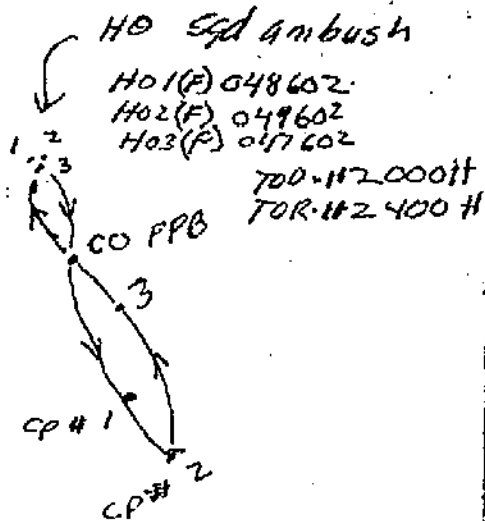 HO Sqd ambush
HO1(F) 048602
HO2(F) 049602
HO3(F) 047602
TOD-H2000H
TOR-H2400H
1 2 3
CO PPB
3
CP # 1
CP # 2